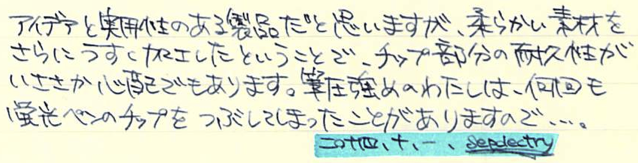 アイデアと実用性のある製品だと思いますが、柔らかい素材を
さらにうすく加工したということで、チップ部分の耐久性が
いささか心配でもあります。筆圧強めのわたしは、何回も
蛍光ペンのチップをつぶしてしまったことがありますので…。
二〇十四、十、一、